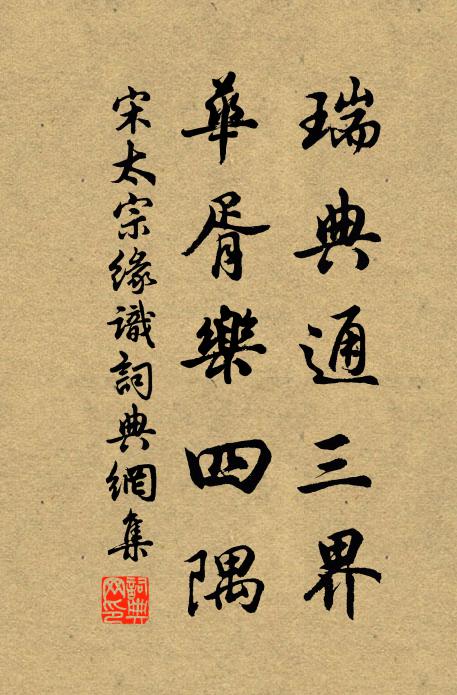 瑞典通三界
華胥樂四隅
宋太宗緣識詞典網集
詞典网印